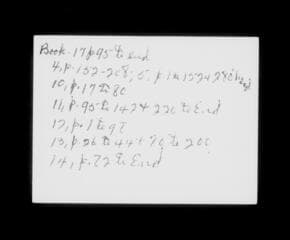 Book - 17 p 95 to end
4, p. 152-208; 5, p 1 to 152 + 28
10, p. 17 to 80
11, p. 95 to 142 + 220 to End
12, p. 1 to 92
13, p. 26 to 44 + 70 to 200
14, p. 72 to End